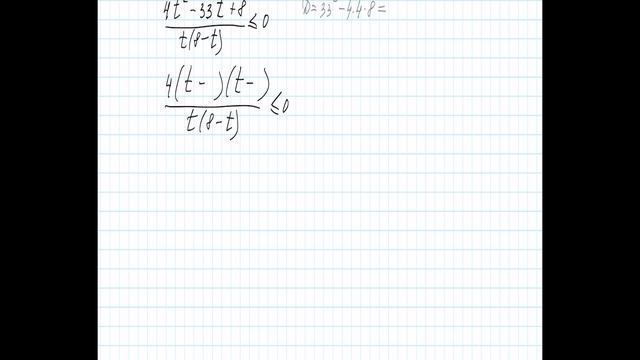 4t² - 33t + 8 / t(8-t) ≤ 0
D = 33² - 4·4·8 =
4(t - )(t - ) / t(8-t) ≤ 0